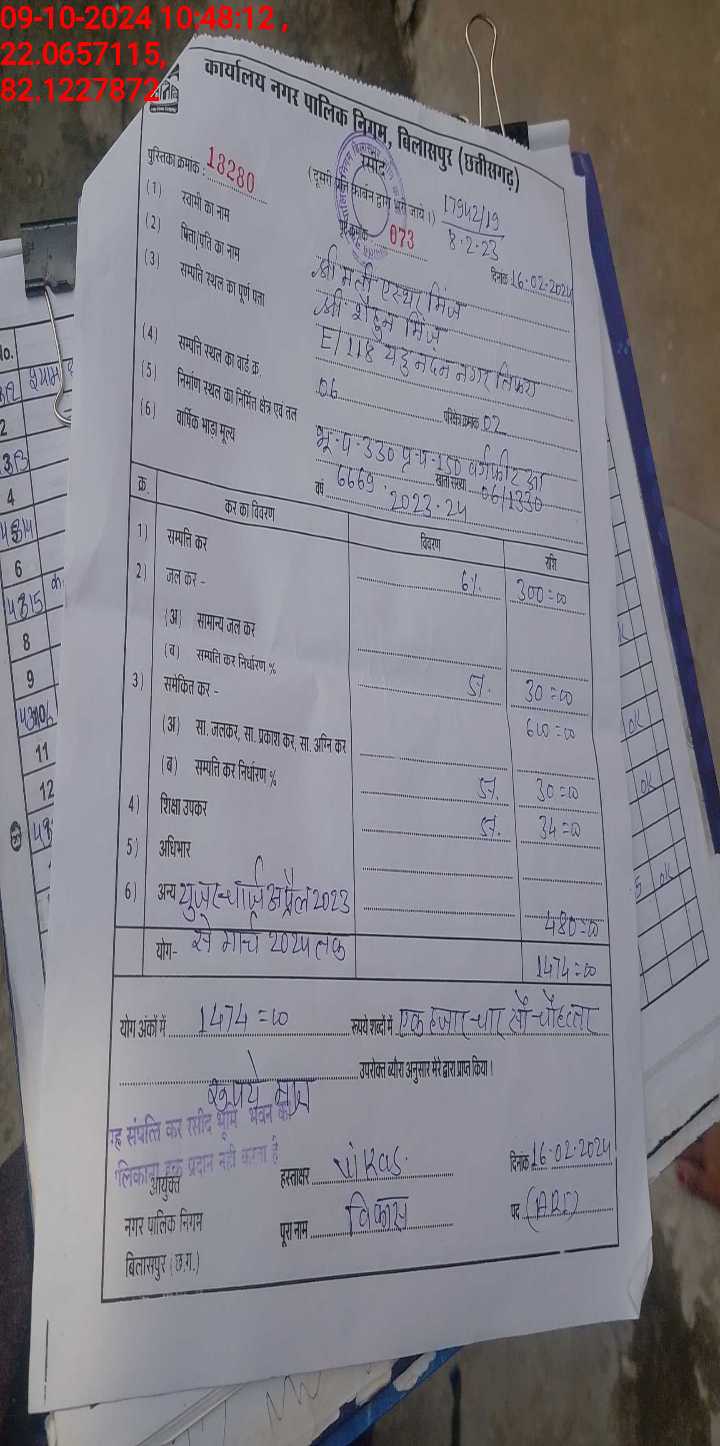 09-10-2024 10:48:12 ,
22.0657115,
82.1227872
कार्यालय नगर पालिक निगम, बिलासपुर (छत्तीसगढ़)
रसीद
पुस्तिका क्रमांक : 18280
(दूसरी प्रति कार्बन द्वारा भरी जाये।) 17942/19
073 8.2.23
दिनांक 16-02-2024
(1) स्वामी का नाम श्रीमती एस्थर मिंज
(2) पिता/पति का नाम श्री मिंज
(3) सम्पति स्थल का पूर्ण पता E/118 यदुनंदन नगर तिफरा
(4) सम्पति स्थल का वार्ड क्र 06 परिक्षेत्र क्रमांक 02
(5) निर्माण स्थल का निर्मित क्षेत्र एवं तल भू-प-330 प्र-प-150 वर्गफीट
(6) वार्षिक भाड़ा मूल्य 6669 खाता संख्या 06/1330
वर्ष 2023-24
क्र. कर का विवरण विवरण राशि
1) सम्पत्ति कर 6% 300=00
2) जल कर -
(अ) सामान्य जल कर
(ब) सम्पति कर निर्धारण % 5%. 30=00
3) समेकित कर - 600=00
(अ) सा. जलकर, सा. प्रकाश कर, सा. अग्नि कर
(ब) सम्पति कर निर्धारण % 5%. 30=00
4) शिक्षा उपकर 5%. 34=00
5) अधिभार
6) अन्य युजर चार्ज अप्रैल 2023 480=00
योग- से मार्च 2024 तक 1474=00
योग अंकों में 1474=00 रूपये शब्दों में एक हजार चार सौ चौहत्तर
रूपये मात्र उपरोक्त ब्यौरा अनुसार मेरे द्वारा प्राप्त किया।
संपत्ति कर रसीद भूमि भवन के
हक प्रदान नही करता है
आयुक्त हस्ताक्षर Vikas. दिनांक 16-02-2024
नगर पालिक निगम पूरा नाम विकास पद (ARI)
बिलासपुर (छ.ग.)
No.
2
4
6
4815
8
9
11
12
ok
ok
ok